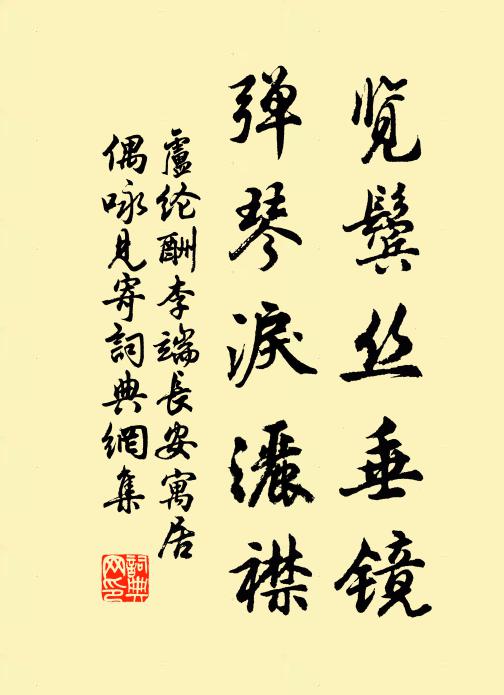 览鬓丝垂镜
弹琴淚灑襟
盧纶酬李端長安寓居
偶咏見寄詞典網集
詞典网印